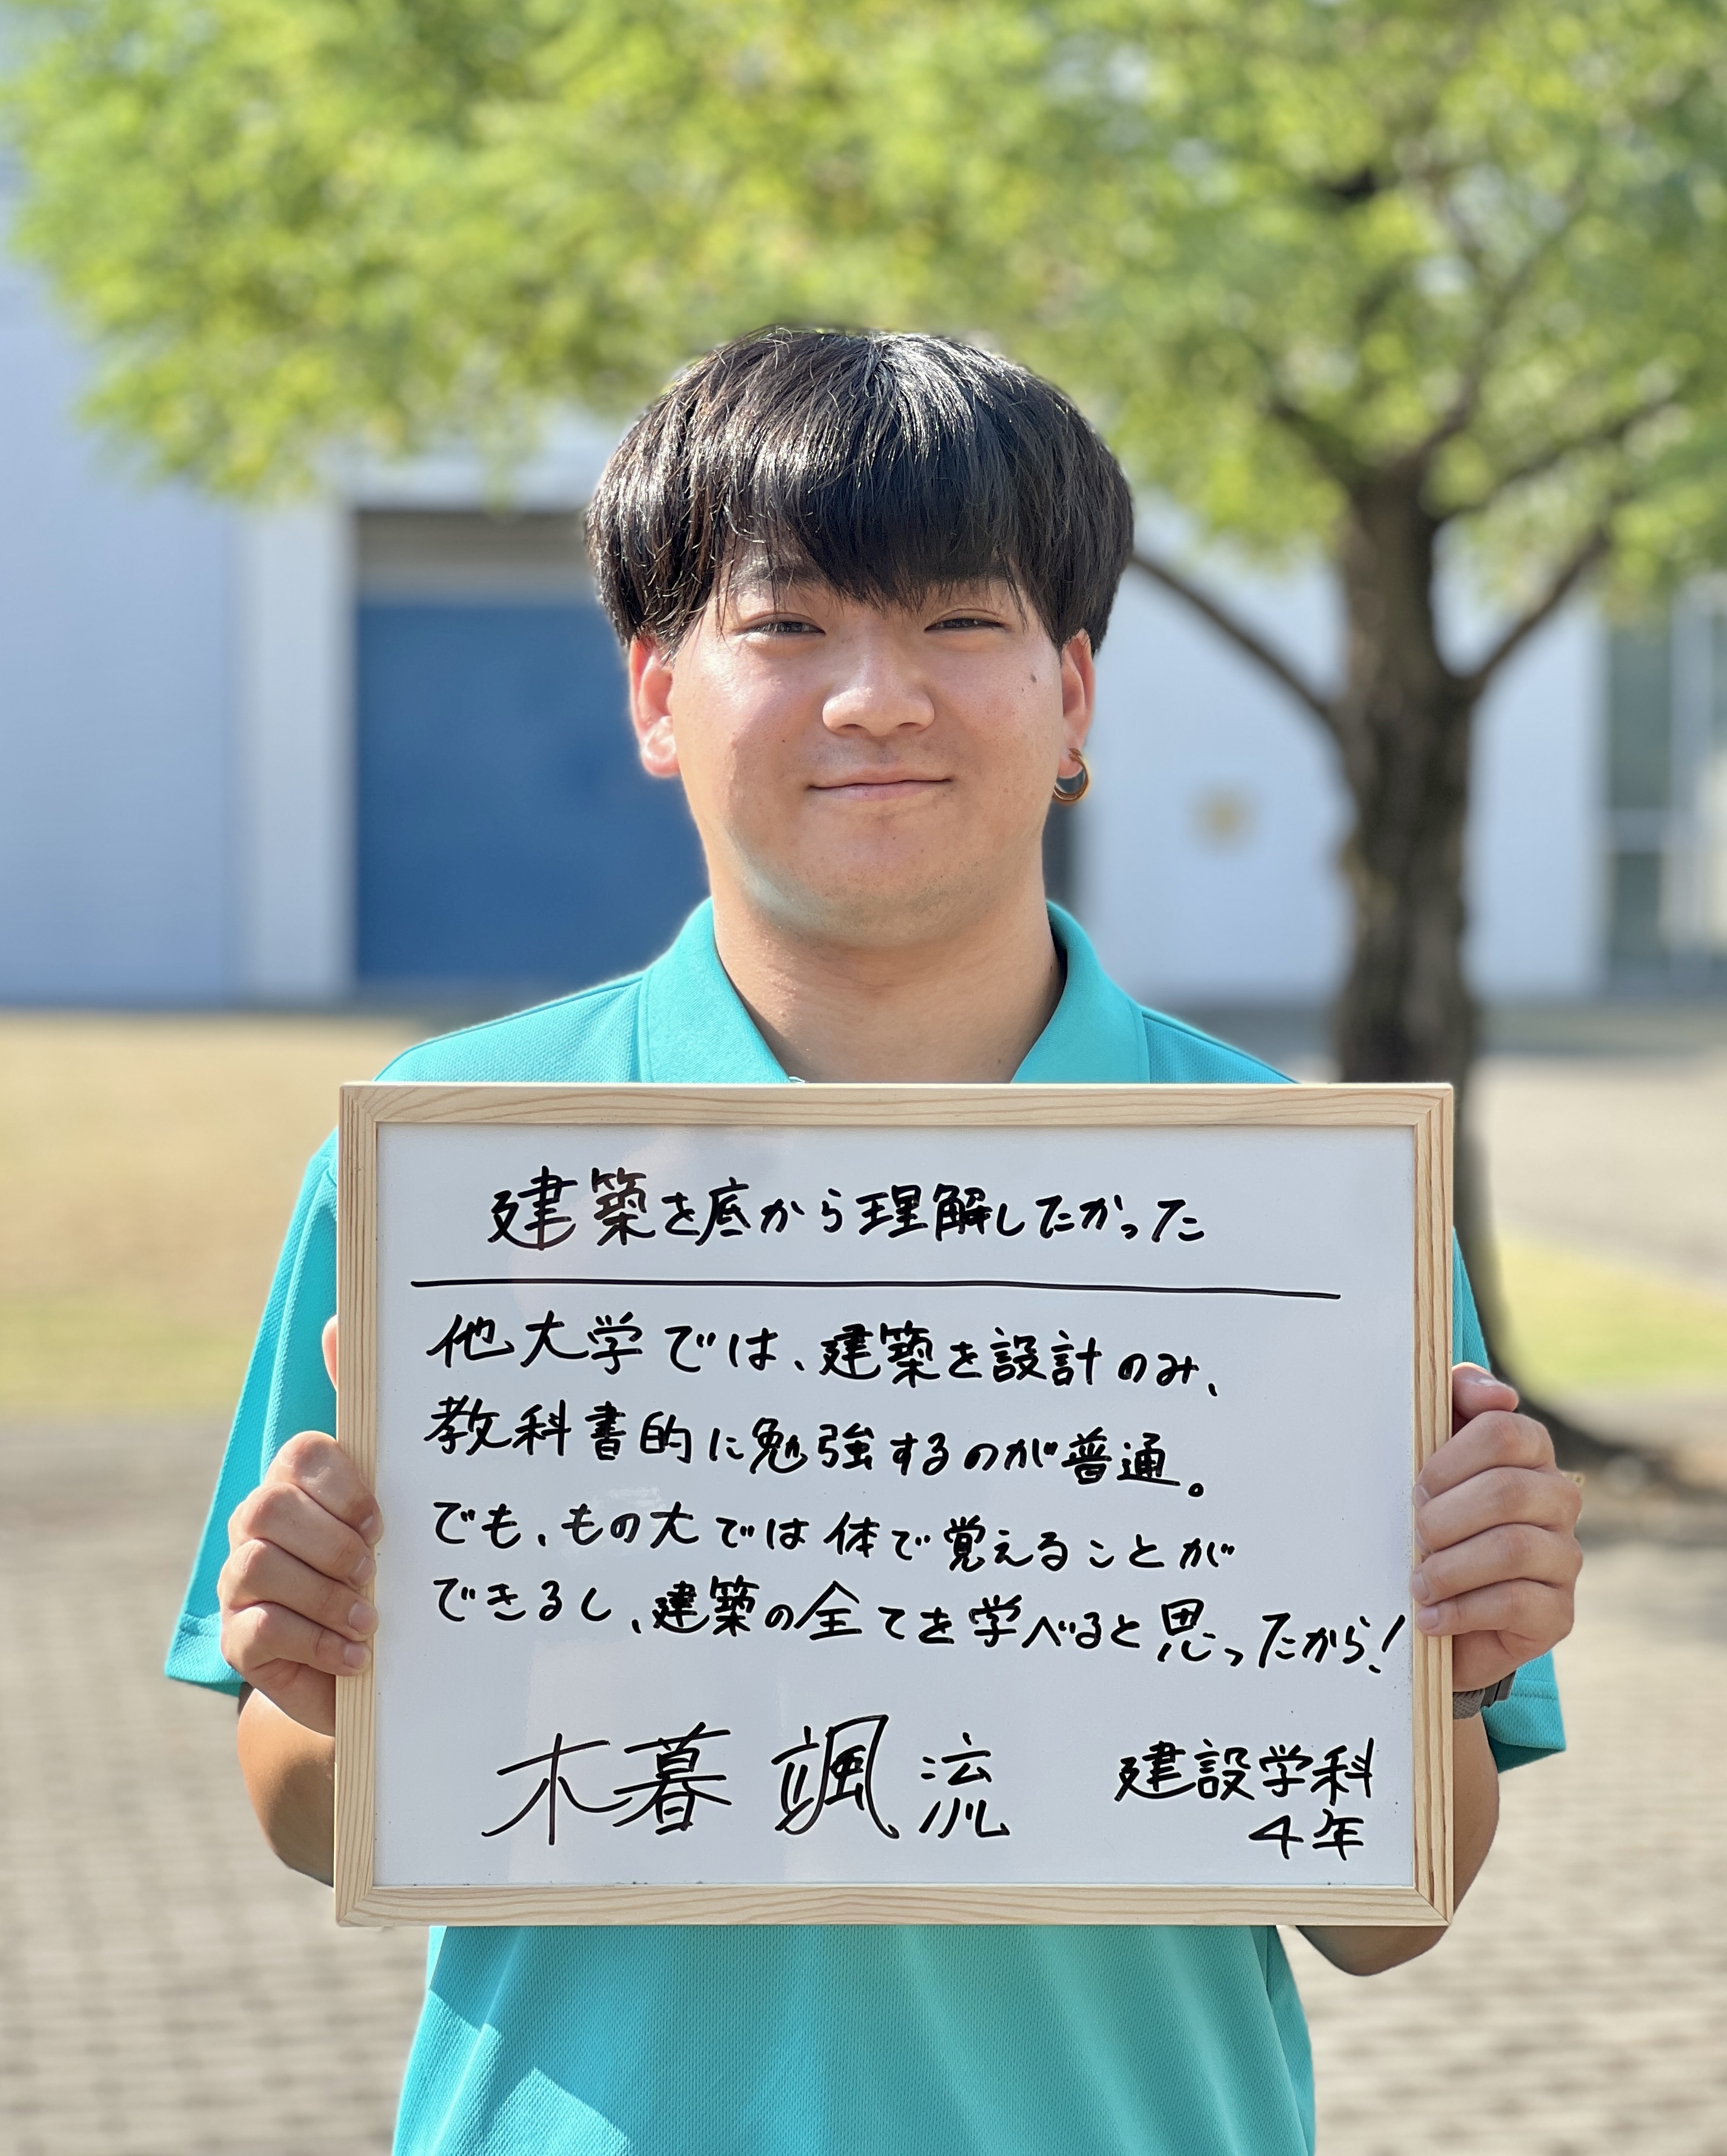 建築を底から理解したかった
他大学では、建築を設計のみ、
教科書的に勉強するのが普通。
でも、もの大では体で覚えることが
できるし、建築の全てを学べると思ったから!
木暮 颯流
建設学科
4年